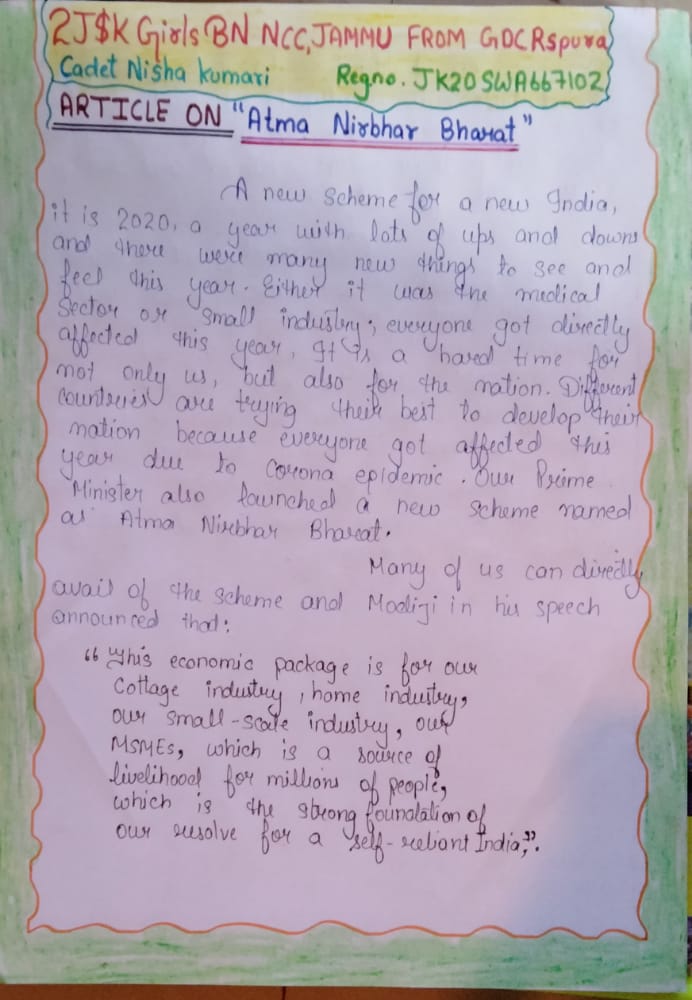 2J$K Girls BN NCC, JAMMU FROM GDC Rspura
Cadet Nisha Kumari Regno. JK20SWA667102
ARTICLE ON "Atma Nirbhar Bharat"
A new scheme for a new India,
it is 2020, a year with lots of ups and downs
and there were many new things to see and
feel this year. Either it was the medical
Sector or small industry; everyone got directly
affected this year. It is a hard time for
not only us, but also for the nation. Different
countries are trying their best to develop their
nation because everyone got affected this
year due to corona epidemic. Our Prime
Minister also launched a new scheme named
as Atma Nirbhar Bharat.
Many of us can directly
avail of the scheme and Modiji in his speech
announced that:
"This economic package is for our
Cottage industry, home industry,
our small-scale industry, our
MSMEs, which is a source of
livelihood for millions of people,
which is the strong foundation of
our resolve for a self-reliant India,".